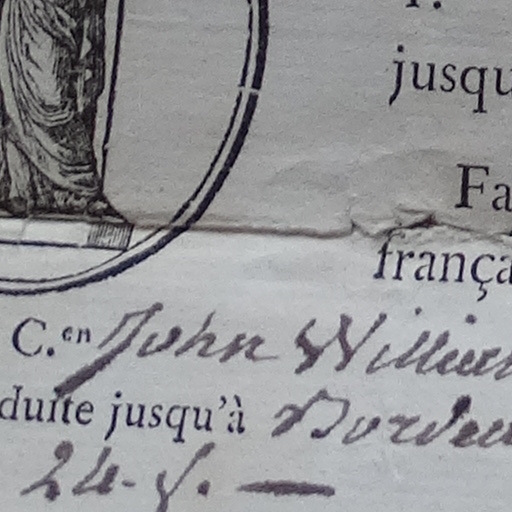 jusqu
Fa
frança
C.en John William
duite jusqu'à Bordeau
24. f. —